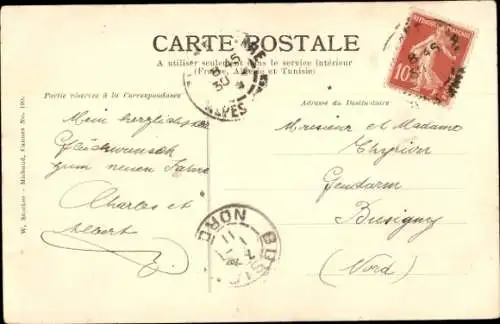 CARTE POSTALE
A utiliser seulement dans le service intérieur
(France, Algérie et Tunisie)
Partie réservée à la Correspondance
Adresse du Destinataire
Mein herzlichster
Glückwunsch
zum neuen Jahre
Charles et
Albert
Monsieur et Madame
Gendarm
Busigny
(Nord)
W. Stoeker - Michaud, Cannes No. 180.
RÉPUBLIQUE FRANÇAISE
10
8 45
30
ALPES
NORD
11